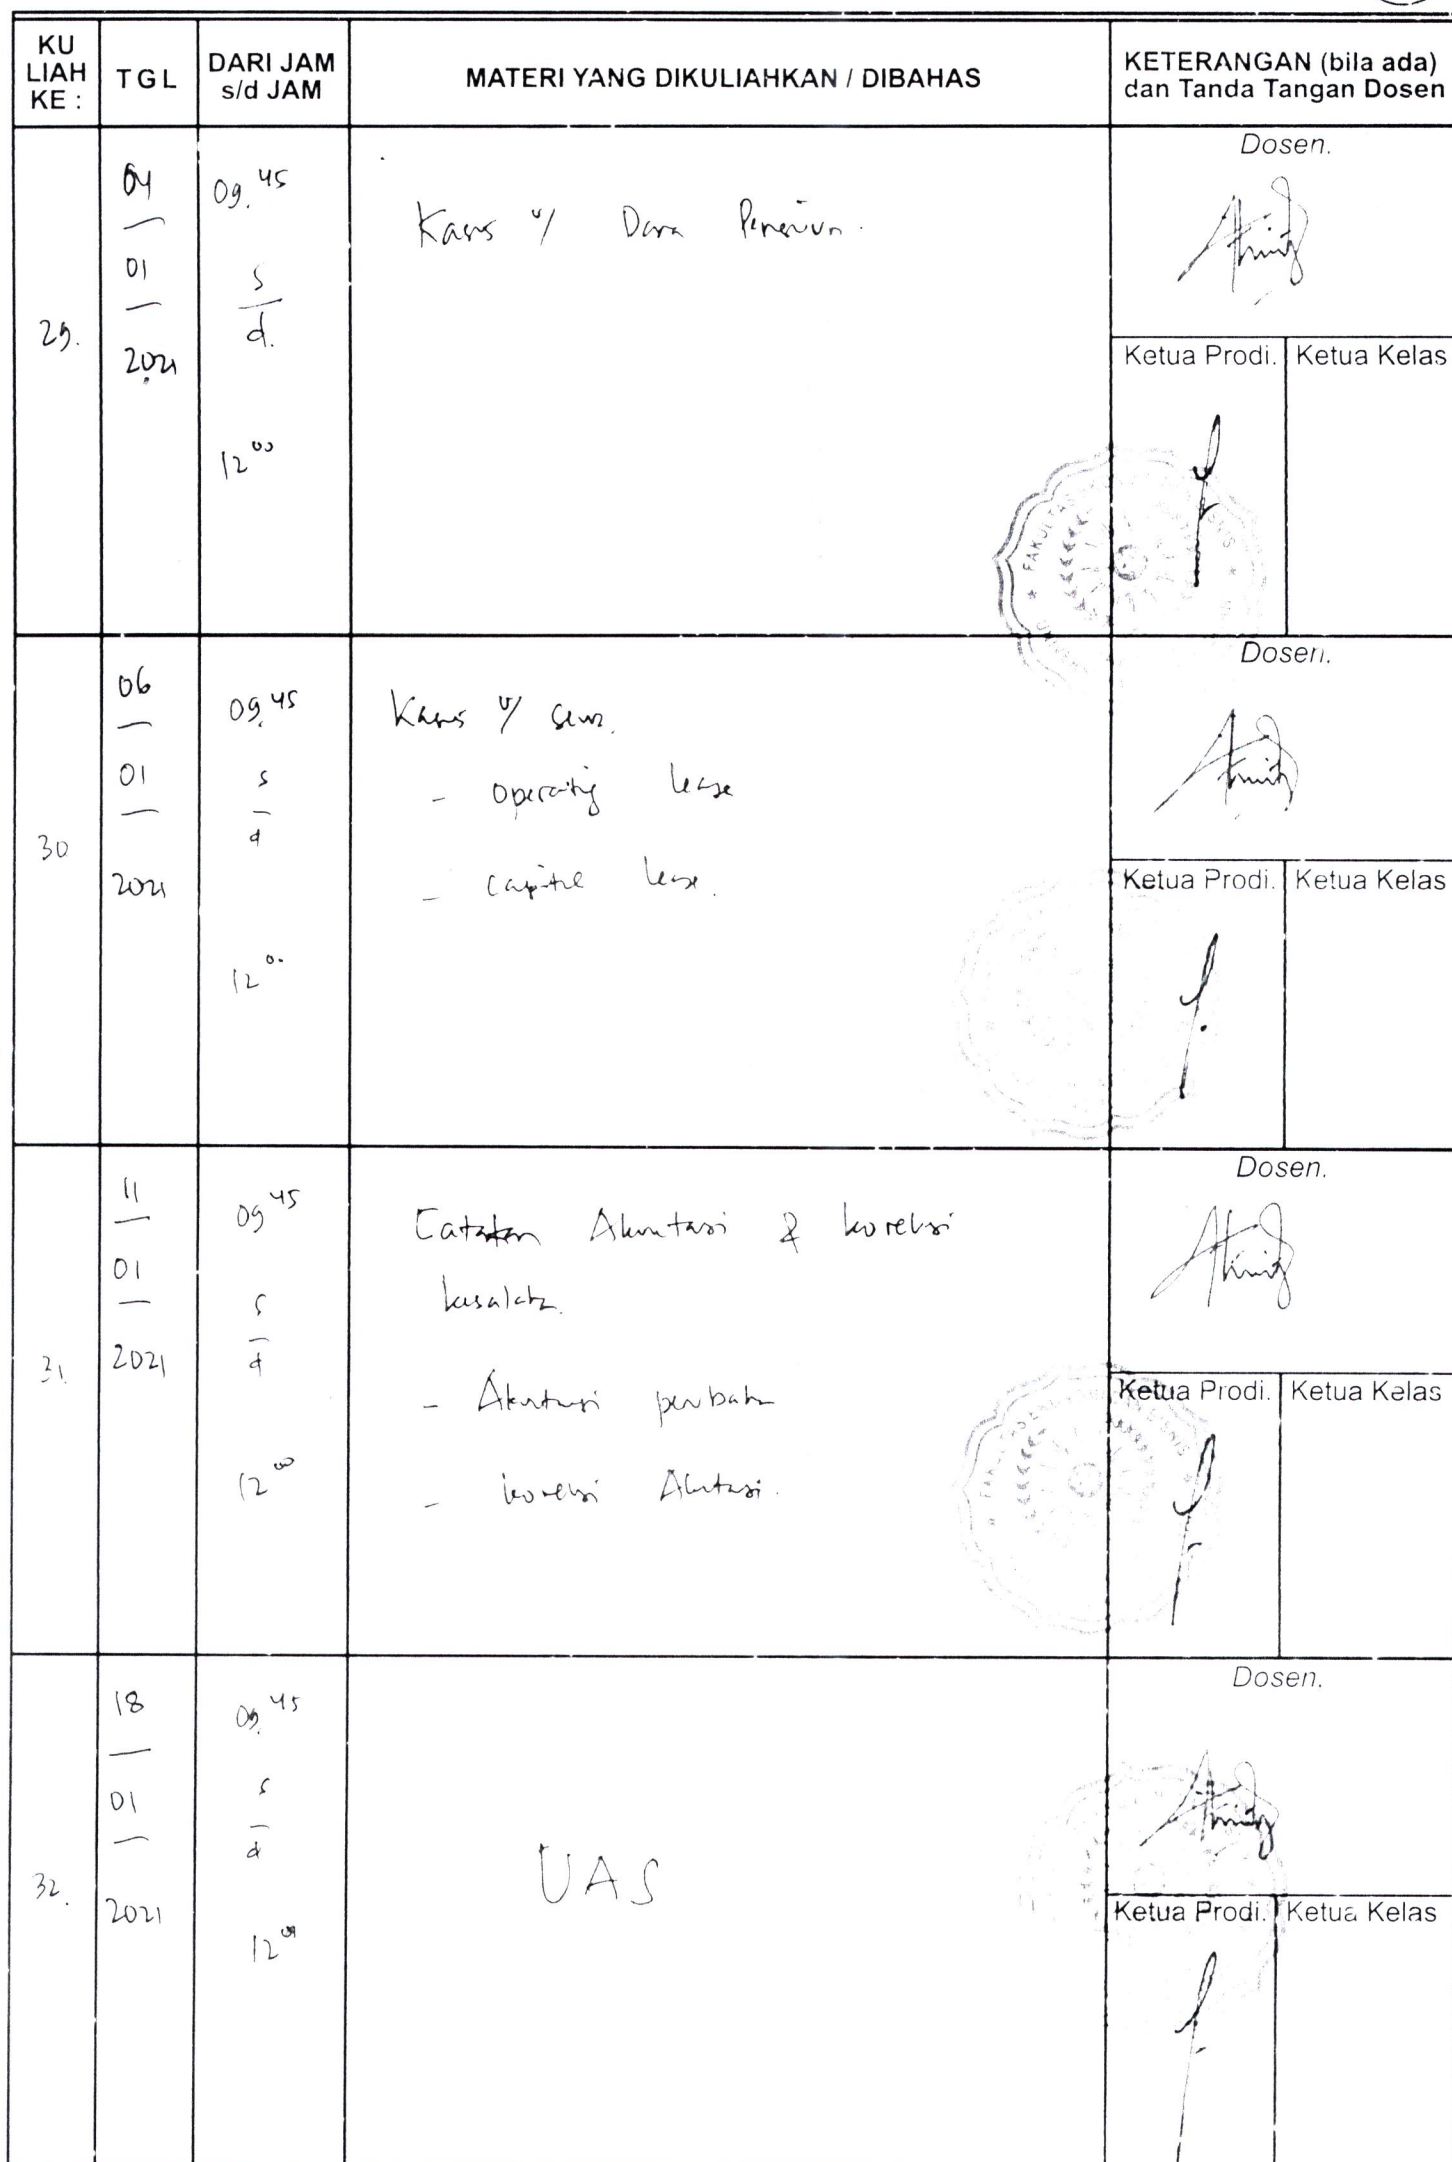 KU
LIAH
KE :
TGL
DARI JAM
s/d JAM
MATERI YANG DIKULIAHKAN / DIBAHAS
KETERANGAN (bila ada)
dan Tanda Tangan Dosen
29.
04
01
2021
09.45
s
d.
12 00
Kasus u/ Dana Pensiun.
Dosen.
Ketua Prodi.
Ketua Kelas
FAKULTAS
30
06
01
2021
09.45
s
d
12 00
Kasus u/ sewa.
- Operating lease
- Capital lease.
Dosen.
Ketua Prodi.
Ketua Kelas
31.
11
01
2021
09 45
s
d
12 00
Catatan Akuntasi & koreksi
kesalahan.
- Akuntansi perubahan
- koreksi Akuntasi.
Dosen.
Ketua Prodi.
Ketua Kelas
32.
18
01
2021
09.45
s
d
12 00
UAS
Dosen.
Ketua Prodi.
Ketua Kelas